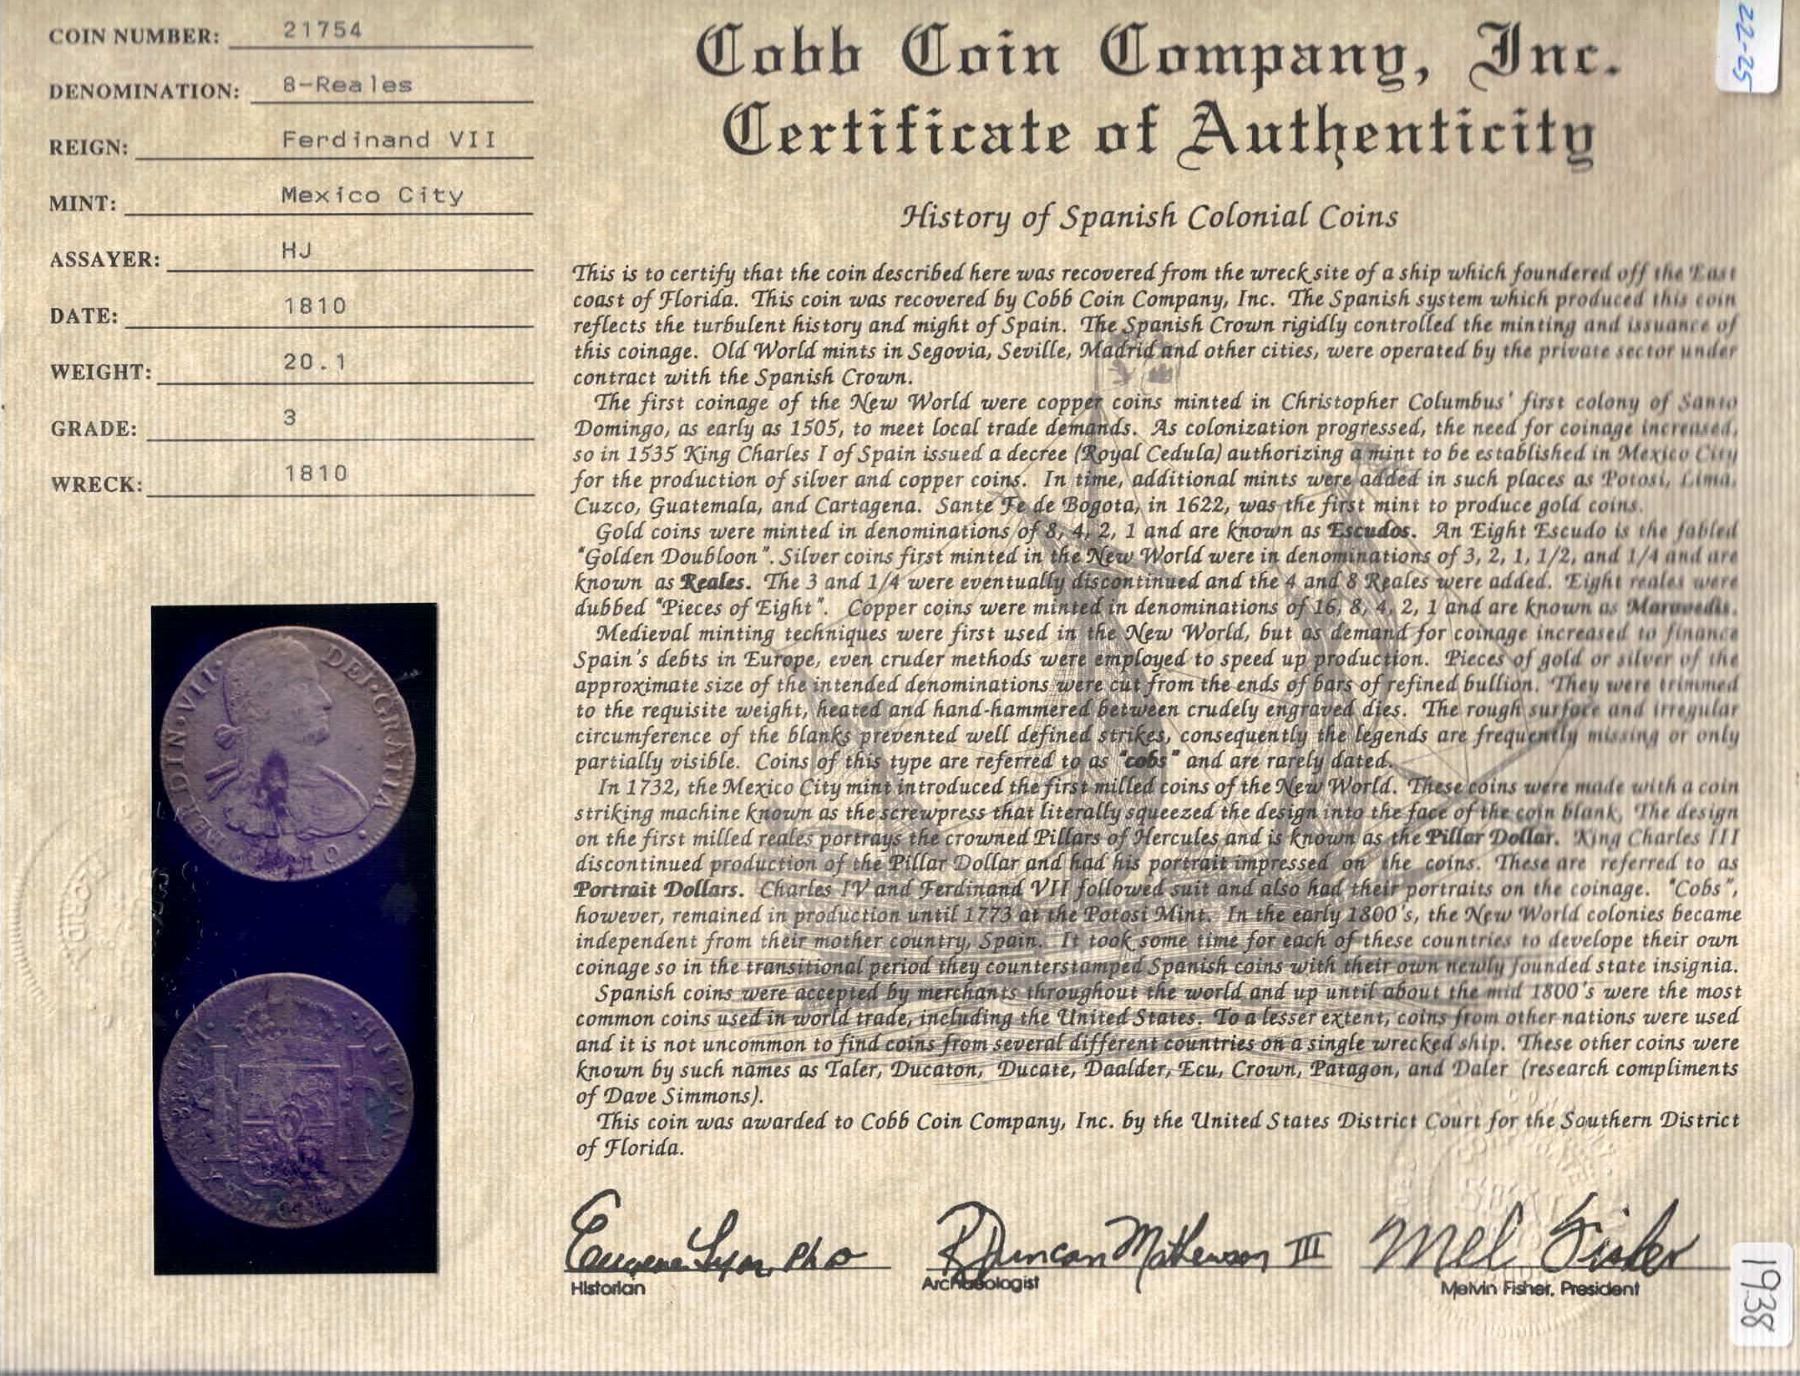 COIN NUMBER: 21754
DENOMINATION: 8-Reales
REIGN: Ferdinand VII
MINT: Mexico City
ASSAYER: HJ
DATE: 1810
WEIGHT: 20.1
GRADE: 3
WRECK: 1810
FERDIN·VII· DEI·GRATIA·
22-25
Cobb Coin Company, Inc.
Certificate of Authenticity
History of Spanish Colonial Coins
This is to certify that the coin described here was recovered from the wreck site of a ship which foundered off the East
coast of Florida. This coin was recovered by Cobb Coin Company, Inc. The Spanish system which produced this coin
reflects the turbulent history and might of Spain. The Spanish Crown rigidly controlled the minting and issuance of
this coinage. Old World mints in Segovia, Seville, Madrid and other cities, were operated by the private sector under
contract with the Spanish Crown.
The first coinage of the New World were copper coins minted in Christopher Columbus' first colony of Santo
Domingo, as early as 1505, to meet local trade demands. As colonization progressed, the need for coinage increased,
so in 1535 King Charles I of Spain issued a decree (Royal Cedula) authorizing a mint to be established in Mexico City
for the production of silver and copper coins. In time, additional mints were added in such places as Potosi, Lima,
Cuzco, Guatemala, and Cartagena. Sante Fe de Bogota, in 1622, was the first mint to produce gold coins.
Gold coins were minted in denominations of 8, 4, 2, 1 and are known as Escudos. An Eight Escudo is the fabled
"Golden Doubloon". Silver coins first minted in the New World were in denominations of 3, 2, 1, 1/2, and 1/4 and are
known as Reales. The 3 and 1/4 were eventually discontinued and the 4 and 8 Reales were added. Eight reales were
dubbed "Pieces of Eight". Copper coins were minted in denominations of 16, 8, 4, 2, 1 and are known as Maravedis.
Medieval minting techniques were first used in the New World, but as demand for coinage increased to finance
Spain's debts in Europe, even cruder methods were employed to speed up production. Pieces of gold or silver of the
approximate size of the intended denominations were cut from the ends of bars of refined bullion. They were trimmed
to the requisite weight, heated and hand-hammered between crudely engraved dies. The rough surface and irregular
circumference of the blanks prevented well defined strikes, consequently the legends are frequently missing or only
partially visible. Coins of this type are referred to as "cobs" and are rarely dated.
In 1732, the Mexico City mint introduced the first milled coins of the New World. These coins were made with a coin
striking machine known as the screwpress that literally squeezed the design into the face of the coin blank, The design
on the first milled reales portrays the crowned Pillars of Hercules and is known as the Pillar Dollar. King Charles III
discontinued production of the Pillar Dollar and had his portrait impressed on the coins. These are referred to as
Portrait Dollars. Charles IV and Ferdinand VII followed suit and also had their portraits on the coinage. "Cobs",
however, remained in production until 1773 at the Potosi Mint. In the early 1800's, the New World colonies became
independent from their mother country, Spain. It took some time for each of these countries to develope their own
coinage so in the transitional period they counterstamped Spanish coins with their own newly founded state insignia.
Spanish coins were accepted by merchants throughout the world and up until about the mid 1800's were the most
common coins used in world trade, including the United States. To a lesser extent, coins from other nations were used
and it is not uncommon to find coins from several different countries on a single wrecked ship. These other coins were
known by such names as Taler, Ducaton, Ducate, Daalder, Ecu, Crown, Patagon, and Daler (research compliments
of Dave Simmons).
This coin was awarded to Cobb Coin Company, Inc. by the United States District Court for the Southern District
of Florida.
Eugene Lyon, PhD R Duncan Mathewson III Mel Fisher
Historian Archaeologist Melvin Fisher, President
1938